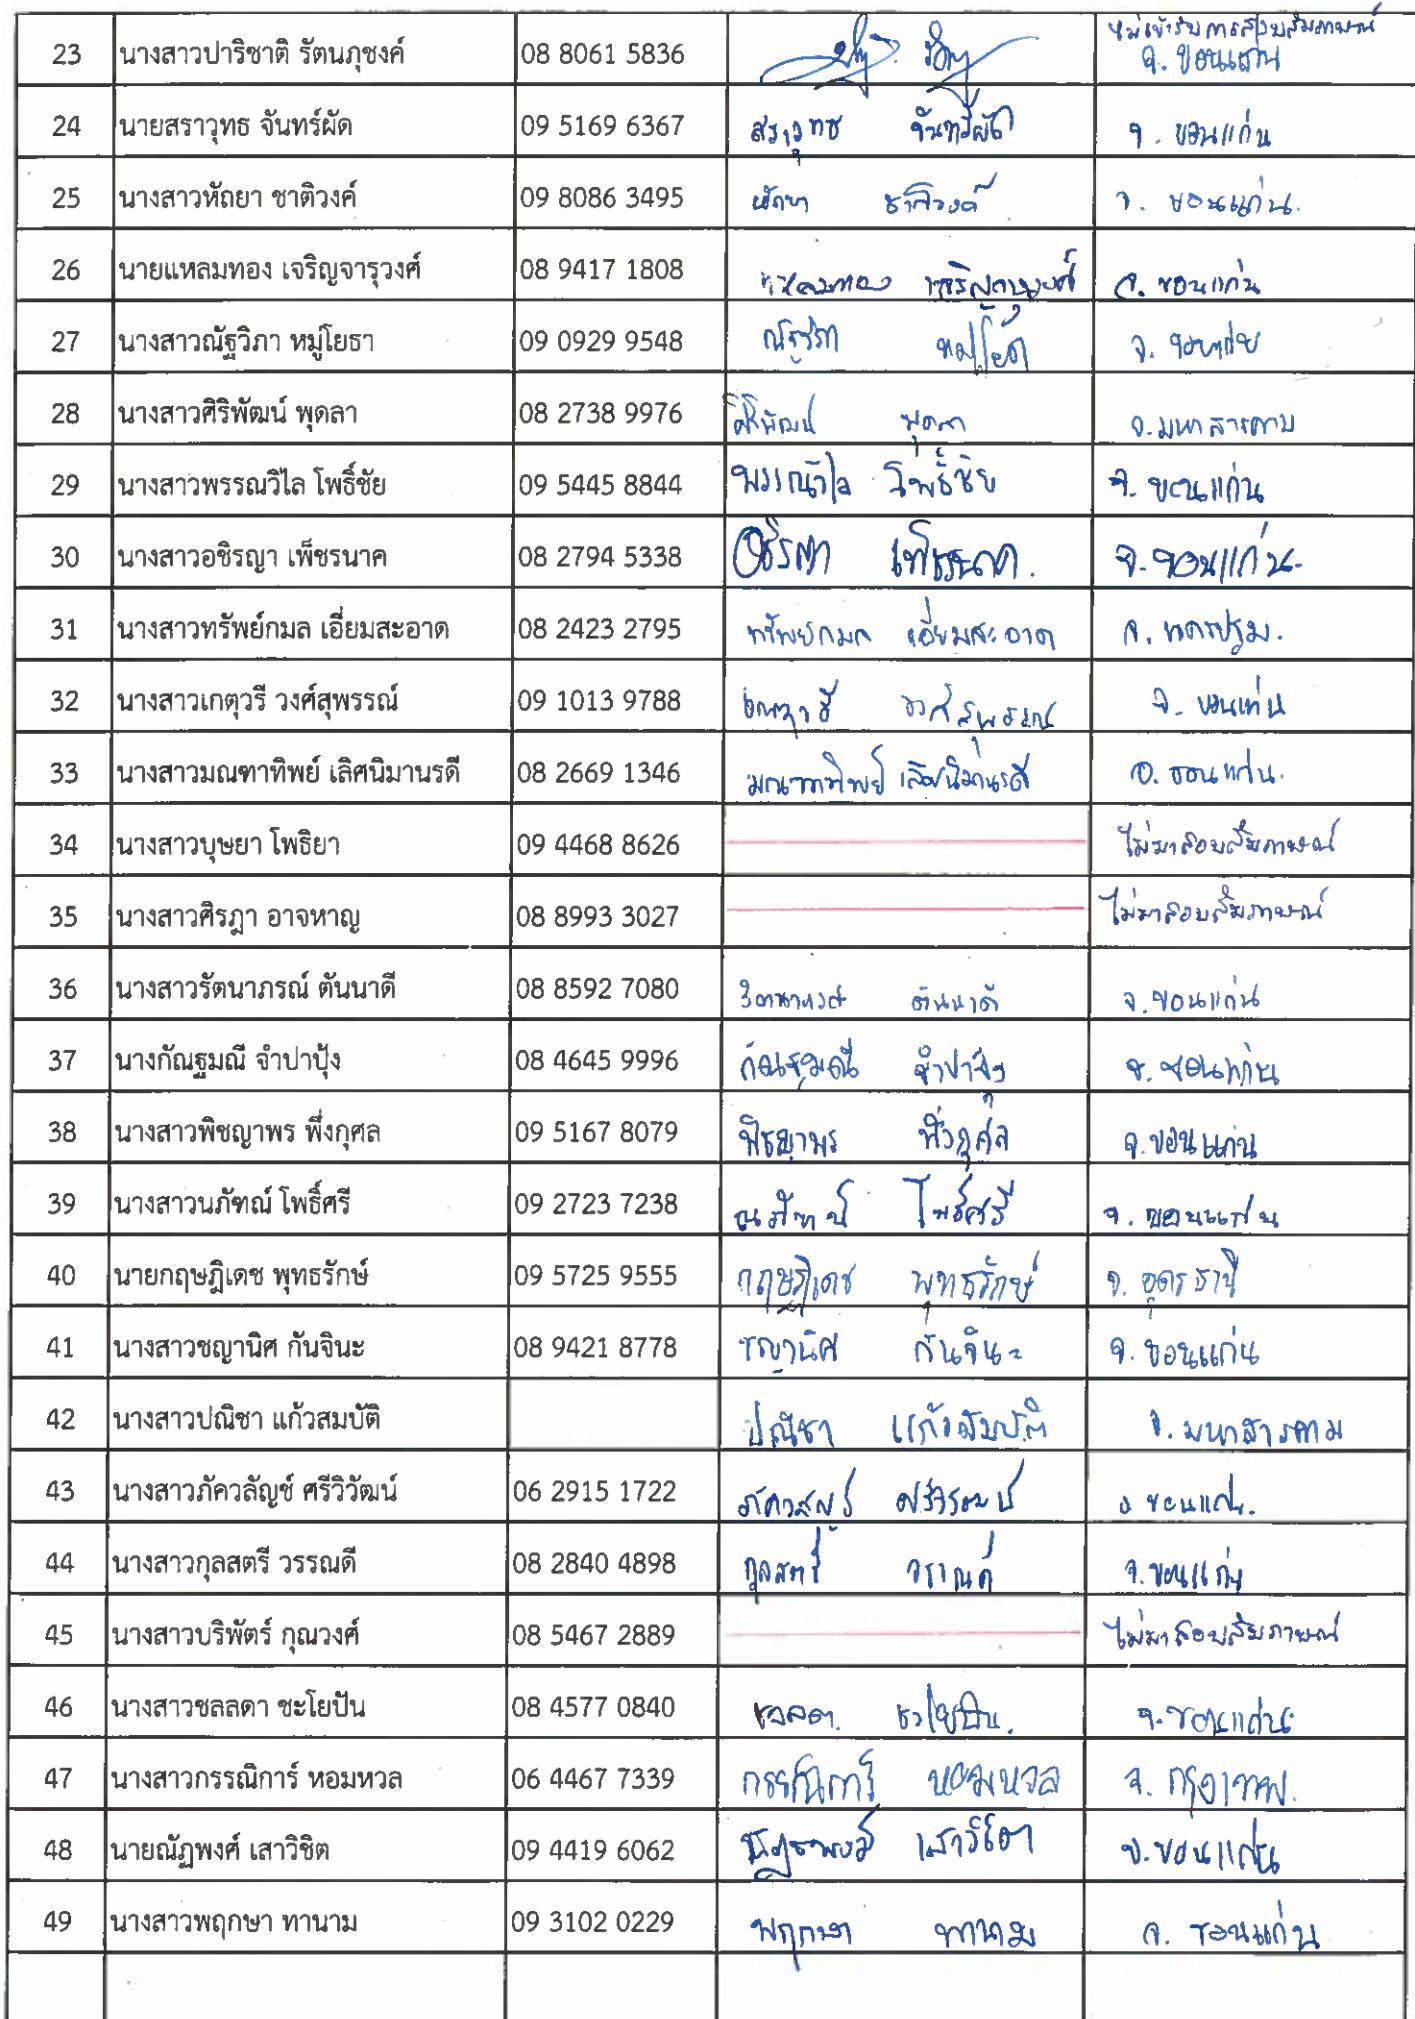 23 นางสาวปาริชาติ รัตนภุชงค์ 08 8061 5836 จ. ขอนแก่น
24 นายสราวุทธ จันทร์ผัด 09 5169 6367 สราวุทธ จันทร์ผัด จ. ขอนแก่น
25 นางสาวหัถยา ชาติวงค์ 09 8086 3495 หัถยา ชาติวงค์ จ. ขอนแก่น.
26 นายแหลมทอง เจริญจารุวงศ์ 08 9417 1808 แหลมทอง เจริญจารุวงศ์ จ. ขอนแก่น
27 นางสาวณัฐวิภา หมู่โยธา 09 0929 9548 ณัฐวิภา หมู่โยธา จ. ขอนแก่น
28 นางสาวศิริพัฒน์ พุดลา 08 2738 9976 ศิริพัฒน์ พุดลา จ.มหาสารคาม
29 นางสาวพรรณวิไล โพธิ์ชัย 09 5445 8844 พรรณวิไล โพธิ์ชัย จ. ขอนแก่น
30 นางสาวอชิรญา เพ็ชรนาค 08 2794 5338 อชิรญา เพ็ชรนาค. จ. ขอนแก่น.
31 นางสาวทรัพย์กมล เอี่ยมสะอาด 08 2423 2795 ทรัพย์กมล เอี่ยมสะอาด จ. นครปฐม.
32 นางสาวเกตุวรี วงศ์สุพรรณ์ 09 1013 9788 เกตุวรี วงศ์สุพรรณ์ จ. ขอนแก่น
33 นางสาวมณฑาทิพย์ เลิศนิมานรดี 08 2669 1346 มณฑาทิพย์ เลิศนิมานรดี จ. ขอนแก่น.
34 นางสาวบุษยา โพธิยา 09 4468 8626 ไม่มาสอบสัมภาษณ์
35 นางสาวศิรฎา อาจหาญ 08 8993 3027 ไม่มาสอบสัมภาษณ์
36 นางสาวรัตนาภรณ์ ตันนาดี 08 8592 7080 รัตนาภรณ์ ตันนาดี จ. ขอนแก่น
37 นางกัณฐมณี จำปาปุ้ง 08 4645 9996 กัณฐมณี จำปาปุ้ง จ. ขอนแก่น
38 นางสาวพิชญาพร พึ่งกุศล 09 5167 8079 พิชญาพร พึ่งกุศล จ.ขอนแก่น
39 นางสาวนภัฑณ์ โพธิ์ศรี 09 2723 7238 นภัฑณ์ โพธิ์ศรี จ. ขอนแก่น
40 นายกฤษฎิเดช พุทธรักษ์ 09 5725 9555 กฤษฎิเดช พุทธรักษ์ จ. อุดรธานี
41 นางสาวชญานิศ กันจินะ 08 9421 8778 ชญานิศ กันจินะ จ. ขอนแก่น
42 นางสาวปณิชา แก้วสมบัติ ปณิชา แก้วสมบัติ จ. มหาสารคาม
43 นางสาวภัควลัญช์ ศรีวิวัฒน์ 06 2915 1722 ภัควลัญช์ ศรีวิวัฒน์ จ ขอนแก่น.
44 นางสาวกุลสตรี วรรณดี 08 2840 4898 กุลสตรี วรรณดี จ.ขอนแก่น
45 นางสาวบริพัตร์ กุณวงศ์ 08 5467 2889 ไม่มาสอบสัมภาษณ์
46 นางสาวชลลดา ชะโยปัน 08 4577 0840 ชลลดา ชะโยปัน. จ. ขอนแก่น
47 นางสาวกรรณิการ์ หอมหวล 06 4467 7339 กรรณิการ์ หอมหวล จ. กรุงเทพ.
48 นายณัฏพงศ์ เสาวิชิต 09 4419 6062 เสาวิชิต จ.ขอนแก่น
49 นางสาวพฤกษา ทานาม 09 3102 0229 พฤกษา ทานาม จ. ขอนแก่น